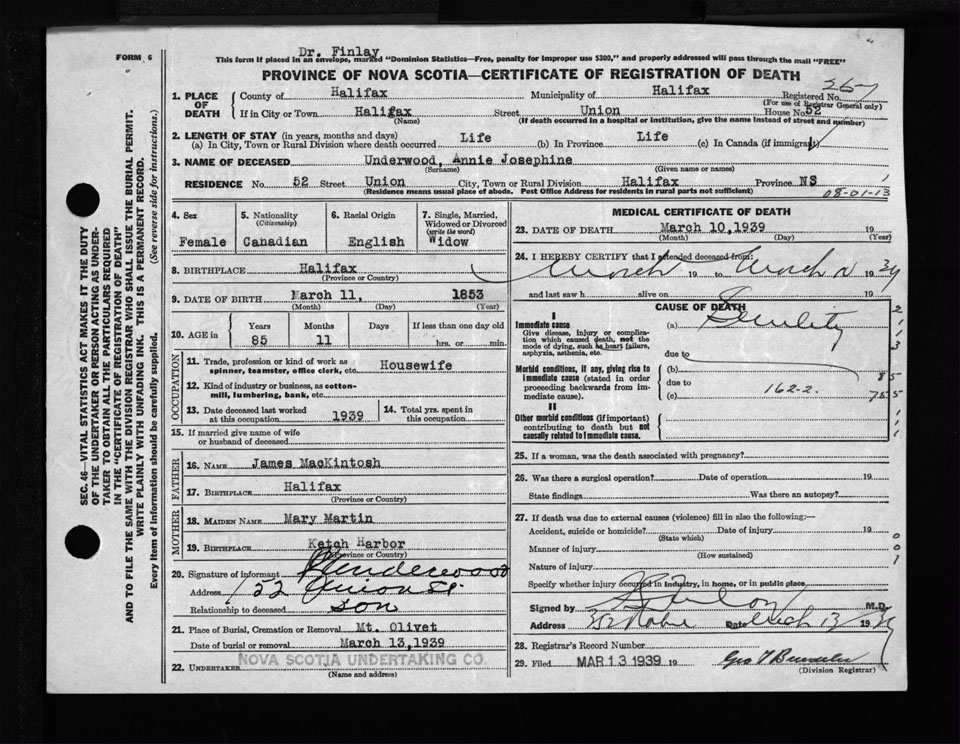 Dr. Finlay
FORM 6
This form if placed in an envelope, marked "Dominion Statistics—Free, penalty for improper use $300," and properly addressed will pass through the mail "FREE"
PROVINCE OF NOVA SCOTIA—CERTIFICATE OF REGISTRATION OF DEATH
1. PLACE OF DEATH
County of Halifax Municipality of Halifax Registered No. 267
(For use of Registrar General only)
If in City or Town Halifax Street Union House No. 52
(Name) (If death occurred in a hospital or institution, give the name instead of street and number)
2. LENGTH OF STAY (in years, months and days)
(a) In City, Town or Rural Division where death occurred Life (b) In Province Life (c) In Canada (if immigrant)
3. NAME OF DECEASED Underwood, Annie Josephine
(Surname) (Given name or names)
RESIDENCE No. 52 Street Union City, Town or Rural Division Halifax Province NS 1
(Residence means usual place of abode. Post Office Address for residents in rural parts not sufficient) 08-01-13
SEC. 46—VITAL STATISTICS ACT MAKES IT THE DUTY
OF THE UNDERTAKER OR PERSON ACTING AS UNDER-
TAKER TO OBTAIN ALL THE PARTICULARS REQUIRED
IN THE "CERTIFICATE OF REGISTRATION OF DEATH"
AND TO FILE THE SAME WITH THE DIVISION REGISTRAR WHO SHALL ISSUE THE BURIAL PERMIT.
WRITE PLAINLY WITH UNFADING INK. THIS IS A PERMANENT RECORD.
Every item of information should be carefully supplied. (See reverse side for instructions.)
4. Sex
Female
5. Nationality
(Citizenship)
Canadian
6. Racial Origin
English
7. Single, Married, Widowed or Divorced
(write the word)
Widow
8. BIRTHPLACE Halifax
(Province or Country)
9. DATE OF BIRTH March 11, 1853
(Month) (Day) (Year)
10. AGE in
Years Months Days If less than one day old
85 11 hrs. or min.
OCCUPATION
11. Trade, profession or kind of work as
spinner, teamster, office clerk, etc. Housewife
12. Kind of industry or business, as cotton-
mill, lumbering, bank, etc.
13. Date deceased last worked
at this occupation 1939
14. Total yrs. spent in
this occupation
15. If married give name of wife
or husband of deceased
FATHER
16. NAME James MacKintosh
17. BIRTHPLACE Halifax
(Province or Country)
MOTHER
18. MAIDEN NAME Mary Martin
19. BIRTHPLACE Ketch Harbor
(Province or Country)
20. Signature of informant Underwood
Address Union St
Relationship to deceased son
21. Place of Burial, Cremation or Removal Mt. Olivet
Date of burial or removal March 13, 1939
22. UNDERTAKER NOVA SCOTIA UNDERTAKING CO.
(Name and address)
MEDICAL CERTIFICATE OF DEATH
23. DATE OF DEATH March 10, 1939 19
(Month) (Day) (Year)
24. I HEREBY CERTIFY that I attended deceased from:
March 19 to March 19 39
and last saw h alive on 19
CAUSE OF DEATH
I
Immediate cause
Give disease, injury or complica-
tion which caused death, not the
mode of dying, such as heart failure,
asphyxia, asthenia, etc.
(a) Senility
due to
Morbid conditions, if any, giving rise to
immediate cause (stated in order
proceeding backwards from im-
mediate cause).
(b)
due to
(c) 162-2.
II
Other morbid conditions (if important)
contributing to death but not
causally related to immediate cause.
25. If a woman, was the death associated with pregnancy?
26. Was there a surgical operation? Date of operation 19
State findings Was there an autopsy?
27. If death was due to external causes (violence) fill in also the following:—
Accident, suicide or homicide? Date of injury 19
(State which)
Manner of injury
(How sustained)
Nature of injury
Specify whether injury occurred in industry, in home, or in public place
Signed by Finlay M.D.
Address Date March 13 19 39
28. Registrar's Record Number
29. Filed MAR 13 1939 19
(Division Registrar)